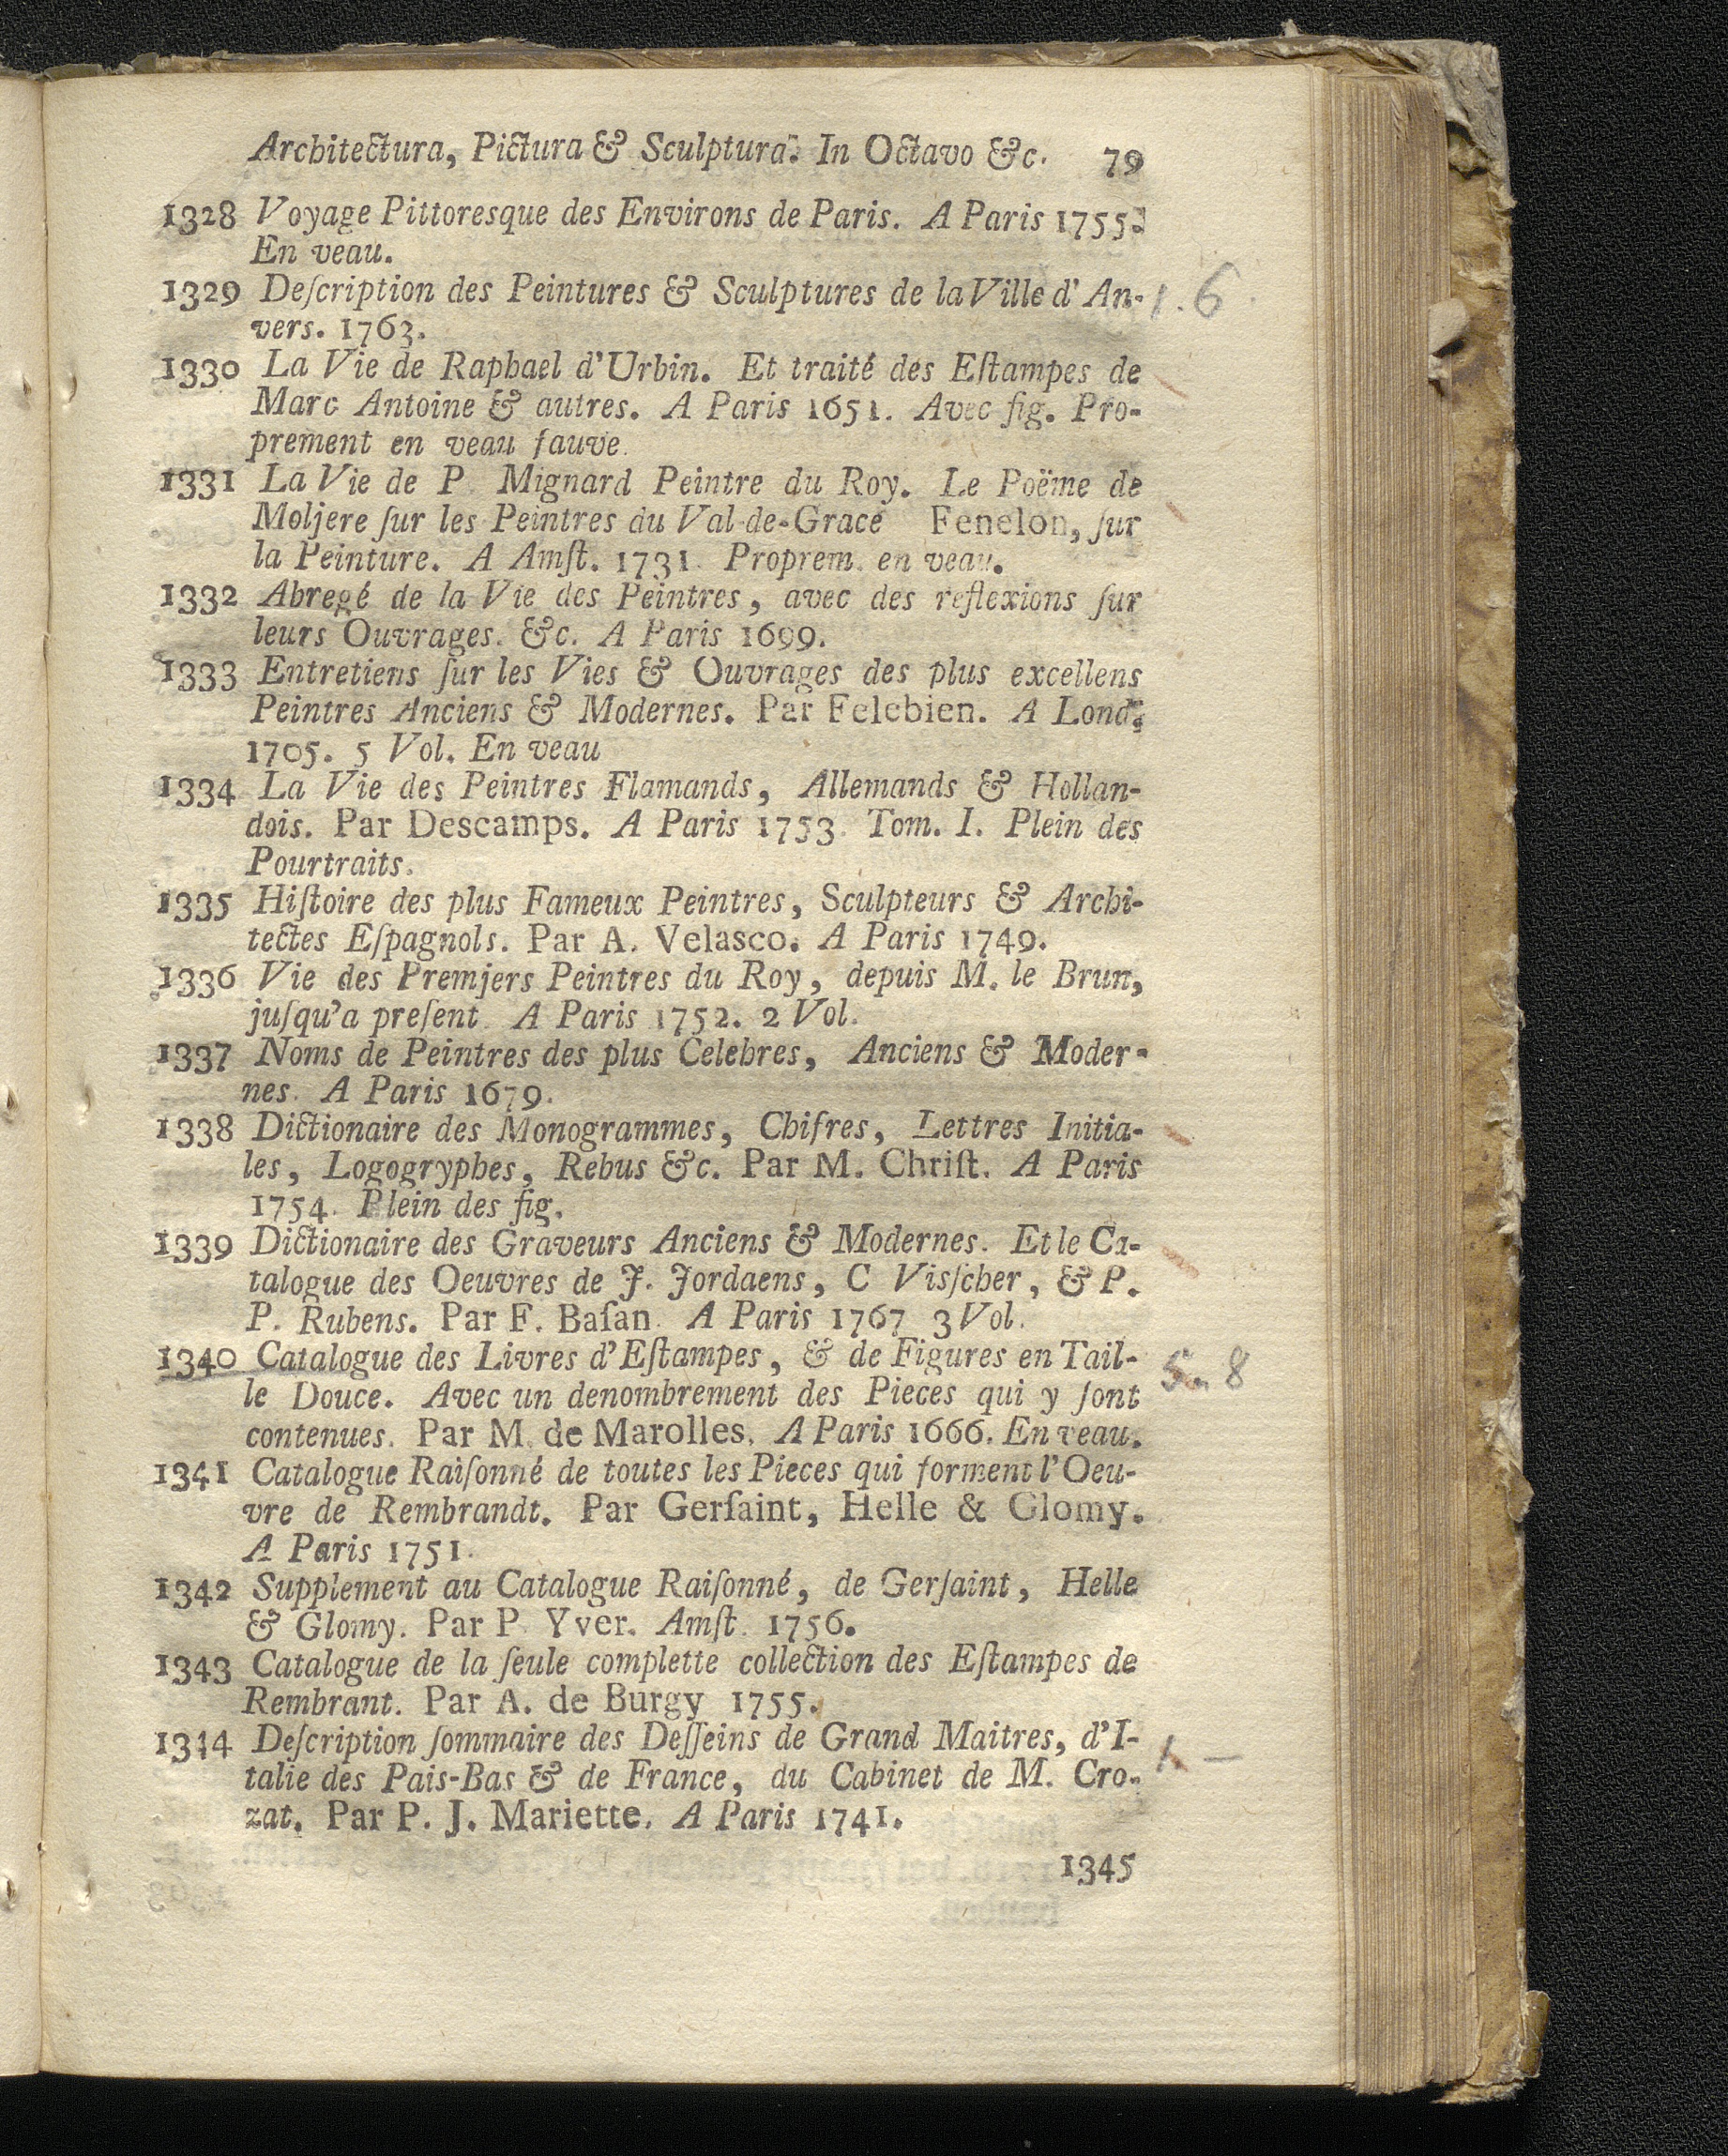 Architectura, Pictura & Sculptura. In Octavo &c. 79
1328 Voyage Pittoresque des Environs de Paris. A Paris 1755.
En veau.
1329 Deſcription des Peintures & Sculptures de la Ville d' An- 1. 6
vers. 1763.
1330 La Vie de Raphael d'Urbin. Et traité des Eſtampes de
Marc Antoine & autres. A Paris 1651. Avec fig. Pro-
prement en veau fauve.
1331 La Vie de P. Mignard Peintre du Roy. Le Poëme de
Moljere ſur les Peintres du Val-de-Grace Fenelon, ſur
la Peinture. A Amſt. 1731. Proprem. en veau.
1332 Abregé de la Vie des Peintres, avec des reflexions ſur
leurs Ouvrages. &c. A Paris 1699.
1333 Entretiens ſur les Vies & Ouvrages des plus excellens
Peintres Anciens & Modernes. Par Felebien. A Lond.
1705. 5 Vol. En veau
1334 La Vie des Peintres Flamands, Allemands & Hollan-
dois. Par Descamps. A Paris 1753. Tom. I. Plein des
Pourtraits.
1335 Hiſtoire des plus Fameux Peintres, Sculpteurs & Archi-
tectes Eſpagnols. Par A. Velasco. A Paris 1749.
1336 Vie des Premjers Peintres du Roy, depuis M. le Brun,
juſqu'a preſent. A Paris 1752. 2 Vol.
1337 Noms de Peintres des plus Celebres, Anciens & Moder-
nes. A Paris 1679.
1338 Dictionaire des Monogrammes, Chifres, Lettres Initia-
les, Logogryphes, Rebus &c. Par M. Chriſt. A Paris
1754. Plein des fig.
1339 Dictionaire des Graveurs Anciens & Modernes. Et le Ca-
talogue des Oeuvres de J. Jordaens, C Visſcher, & P.
P. Rubens. Par F. Baſan. A Paris 1767 3 Vol.
1340 Catalogue des Livres d'Eſtampes, & de Figures en Tail- 5 . 8
le Douce. Avec un denombrement des Pieces qui y ſont
contenues. Par M. de Marolles. A Paris 1666. En veau.
1341 Catalogue Raiſonné de toutes les Pieces qui forment l'Oeu-
vre de Rembrandt. Par Gerſaint, Helle & Glomy.
A Paris 1751.
1342 Supplement au Catalogue Raiſonné, de Gerſaint, Helle
& Glomy. Par P. Yver. Amſt. 1756.
1343 Catalogue de la ſeule complette collection des Eſtampes de
Rembrant. Par A. de Burgy 1755.
1344 Deſcription ſommaire des Deſſeins de Grand Maitres, d'I- 1. –
talie des Pais-Bas & de France, du Cabinet de M. Cro-
zat. Par P. J. Mariette. A Paris 1741.
1345